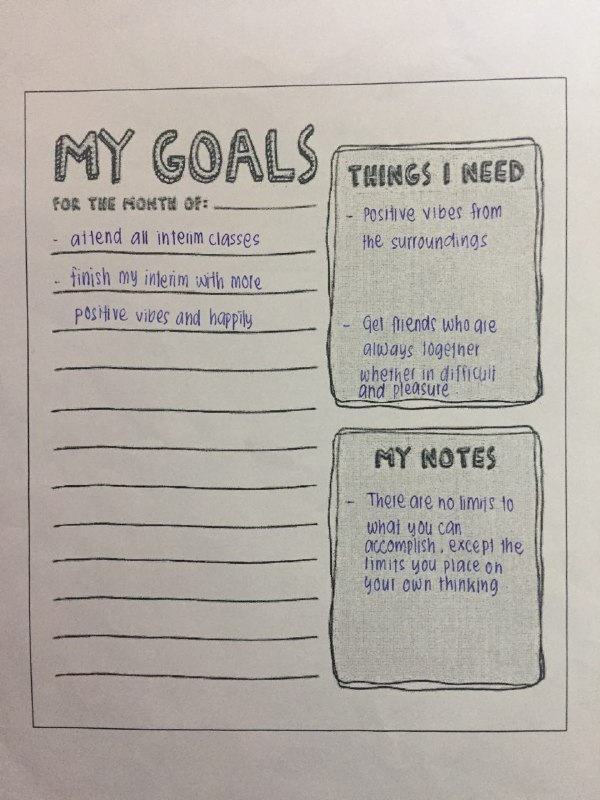 MY GOALS
FOR THE MONTH OF:
- attend all interim classes
- finish my interim with more
positive vibes and happily
THINGS I NEED
- Positive vibes from
the surroundings
- Get friends who are
always together
whether in difficult
and pleasure.
MY NOTES
- There are no limits to
what you can
accomplish, except the
limits you place on
your own thinking.